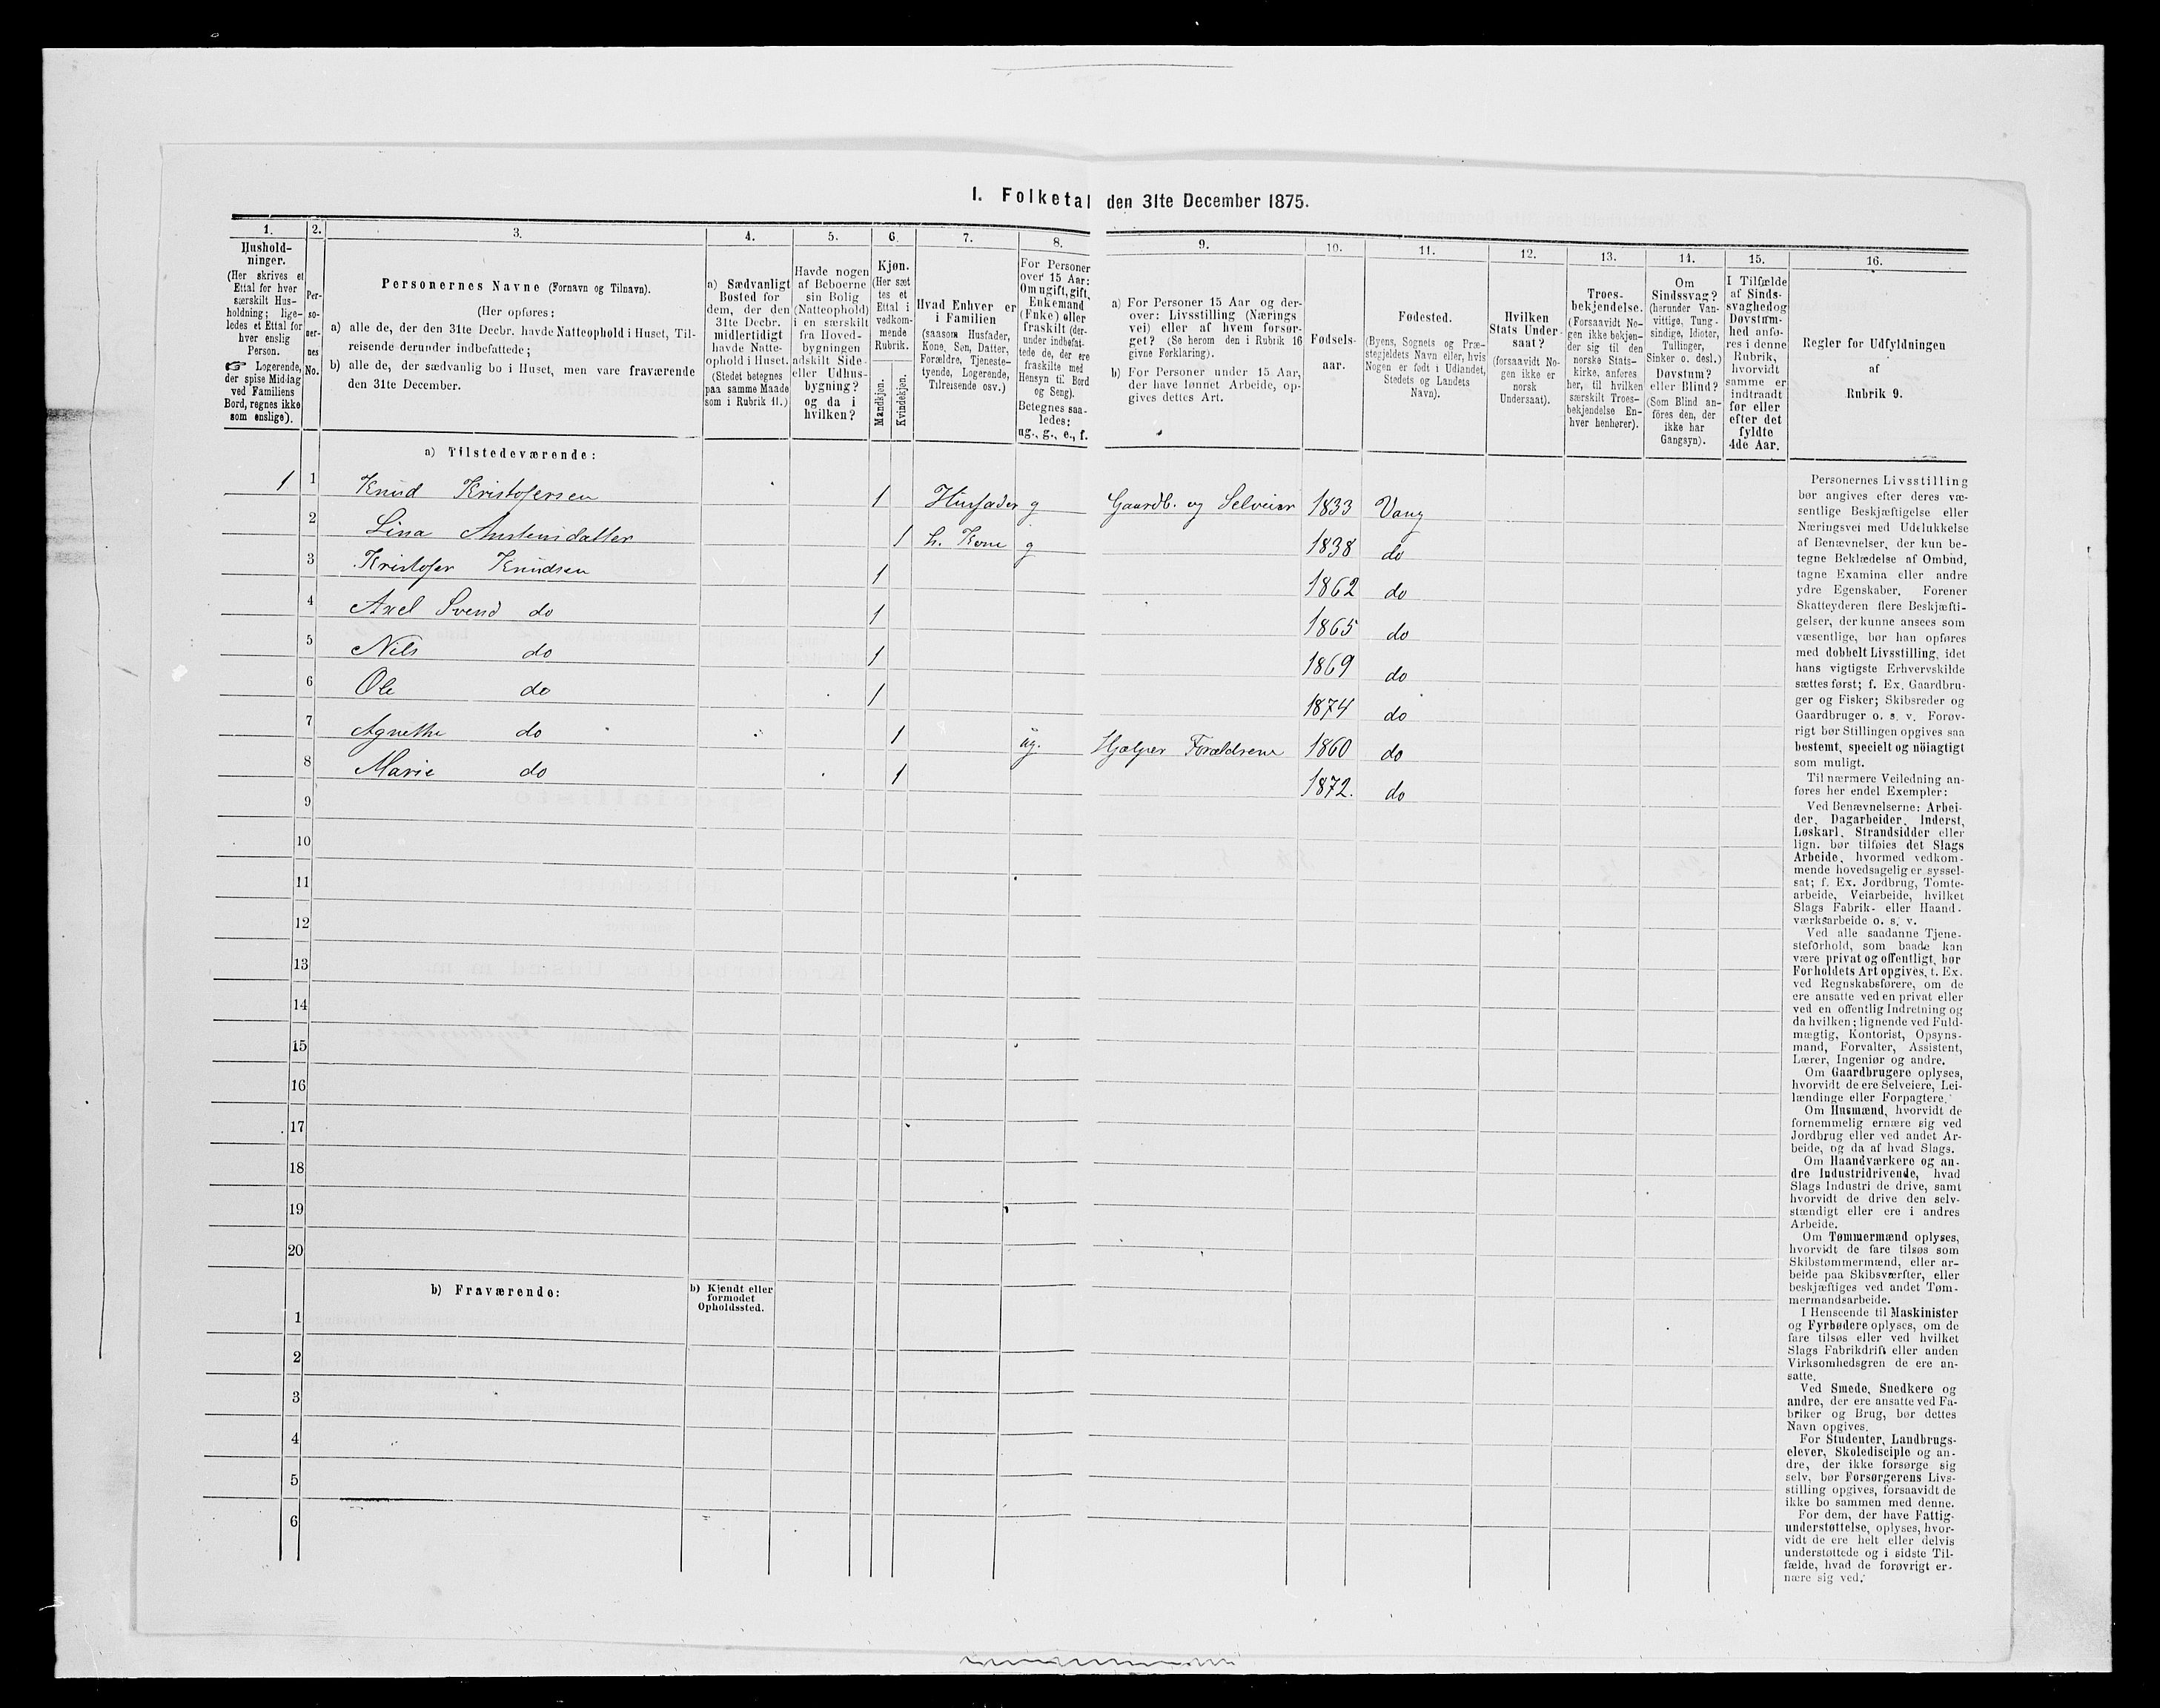 I. Folketal den 31te December 1875.
1.
Hushold-
ninger.
(Her skrives et
Ettal for hver
særskilt Hus-
holdning; lige-
ledes et Ettal for
hver enslig
Person.
☞ Logerende,
der spise Middag
ved Familiens
Bord, regnes ikke
som enslige).
2.
Per-
so-
ner-
nes
No.
3.
Personernes Navne (Fornavn og Tilnavn).
(Her opføres:
a) alle de, der den 31te Decbr. havde Natteophold i Huset, Til-
reisende derunder indbefattede;
b) alle de, der sædvanlig bo i Huset, men vare fraværende
den 31te December.
4.
a) Sædvanligt
Bosted for
dem, der den
31te Decbr.
midlertidigt
havde Natte-
ophold i Huset.
(Stedet betegnes
paa samme Maade
som i Rubrik 11.)
5.
Havde nogen
af Beboerne
sin Bolig
(Natteophold)
i en særskilt
fra Hoved-
bygningen
adskilt Side-
eller Udhus-
bygning?
og da i
hvilken?
6.
Kjøn.
(Her sæt-
tes et
Ettal i
vedkom-
mende
Rubrik.
Mandkjøn.
Kvindekjøn.
7.
Hvad Enhver er
i Familien
(saasom Husfader,
Kone, Søn, Datter,
Forældre, Tjeneste-
tyende, Logerende,
Tilreisende osv.)
8.
For Personer
over 15 Aar:
Om ugift, gift,
Enkemand
(Enke) eller
fraskilt (der-
under indbefat-
tede de, der ere
fraskilte med
Hensyn til Bord
og Seng).
Betegnes saa-
ledes:
ug., g., e., f.
9.
a) For Personer 15 Aar og der-
over: Livsstilling (Nærings-
vei) eller af hvem forsør-
get? (Se herom den i Rubrik 16
givne Forklaring).
b) For Personer under 15 Aar,
der have lønnet Arbeide, op-
gives dettes Art.
10.
Fødsels-
aar.
11.
Fødested.
(Byens, Sognets og Præ-
stegjeldets Navn eller, hvis
Nogen er født i Udlandet,
Stedets og Landets
Navn).
12.
Hvilken
Stats Under-
saat?
(forsaavidt No-
gen ikke er
norsk
Undersaat).
13.
Troes-
bekjendelse.
(Forsaavidt No-
gen ikke bekjen-
der sig til den
norske Stats-
kirke, anføres
her, til hvilken
særskilt Troes-
bekjendelse En-
hver henhører).
14.
Om
Sindssvag?
(herunder Van-
vittige, Tung-
sindige, Idioter,
Tullinger,
Sinker o. desl.)
Døvstum?
eller Blind?
(Som Blind an-
føres den, der
ikke har
Gangsyn).
15.
I Tilfælde
af Sinds-
svaghed og
Døvstum-
hed anfø-
res i denne
Rubrik,
hvorvidt
samme er
indtraadt
før eller
efter det
fyldte
4de Aar.
16.
Regler for Udfyldningen
af
Rubrik 9.
a) Tilstedeværende:
1 1 Knud Kristofersen 1 Husfader g Gaardb. og Selveier 1833 Vang
2 Lina Anstensdatter 1 h. Kone g 1838 do
3 Kristofer Knudsen 1 1862 do
4 Axel Svend do 1 1865 do
5 Nils do 1 1869 do
6 Ole do 1 1874 do
7 Agnethe do 1 ug. Hjælper Forældrene 1860 do
8 Marie do 1 1872. do
9
10
11
12
13
14
15
16
17
18
19
20
b) Fraværende:
b) Kjendt eller
formodet
Opholdssted.
1
2
3
4
5
6
Personernes Livsstilling
bør angives efter deres væ-
sentlige Beskjæftigelse eller
Næringsvei med Udelukkelse
af Benævnelser, der kun be-
tegne Beklædelse af Ombud,
tagne Examina eller andre
ydre Egenskaber. Forener
Skatteyderen flere Beskjæfti-
gelser, der kunne ansees som
væsentlige, bør han opføres
med dobbelt Livsstilling, idet
hans vigtigste Erhvervskilde
sættes først; f. Ex. Gaardbru-
ger og Fisker; Skibsreder og
Gaardbruger o. s. v. Forøv-
rigt bør Stillingen opgives saa
bestemt, specielt og nøiagtigt
som muligt.
Til nærmere Veiledning an-
føres her endel Exempler:
Ved Benævnelserne: Arbei-
der, Dagarbeider, Inderst,
Løskarl, Strandsidder eller
lign. bør tilføies det Slags
Arbeide, hvormed vedkom-
mende hovedsagelig er syssel-
sat; f. Ex. Jordbrug, Tomte-
arbeide, Veiarbeide, hvilket
Slags Fabrik- eller Haand-
værksarbeide o. s. v.
Ved alle saadanne Tjene-
steforhold, som baade kan
være privat og offentligt, bør
Forholdets Art opgives, t. Ex.
ved Regnskabsførere, om de
ere ansatte ved en privat eller
ved en offentlig Indretning og
da hvilken; lignende ved Fuld-
mægtig, Kontorist, Opsyns-
mand, Forvalter, Assistent,
Lærer, Ingeniør og andre.
Om Gaardbrugere oplyses,
hvorvidt de ere Selveiere, Lei-
lændinge eller Forpagtere.
Om Husmænd, hvorvidt de
fornemmelig ernære sig ved
Jordbrug eller ved andet Ar-
beide, og da af hvad Slags.
Om Haandværkere og an-
dre Industridrivende, hvad
Slags Industri de drive, samt
hvorvidt de drive den selv-
stændigt eller ere i andres
Arbeide.
Om Tømmermænd oplyses,
hvorvidt de fare tilsøs som
Skibstømmermænd, eller ar-
beide paa Skibsværfter, eller
beskjæftiges ved andet Tøm-
mermandsarbeide.
I Henseende til Maskinister
og Fyrbødere oplyses, om de
fare tilsøs eller ved hvilket
Slags Fabrikdrift eller anden
Virksomhedsgren de ere an-
satte.
Ved Smede, Snedkere og
andre, der ere ansatte ved Fa-
briker og Brug, bør dettes
Navn opgives.
For Studenter, Landbrugs-
elever, Skoledisciple og an-
dre, der ikke forsørge sig
selv, bør Forsørgerens Livs-
stilling opgives, forsaavidt de
ikke bo sammen med denne.
For dem, der have Fattig-
understøttelse, oplyses, hvor-
vidt de ere helt eller delvis
understøttede og i sidste Til-
fælde, hvad de forøvrigt er-
nære sig ved.